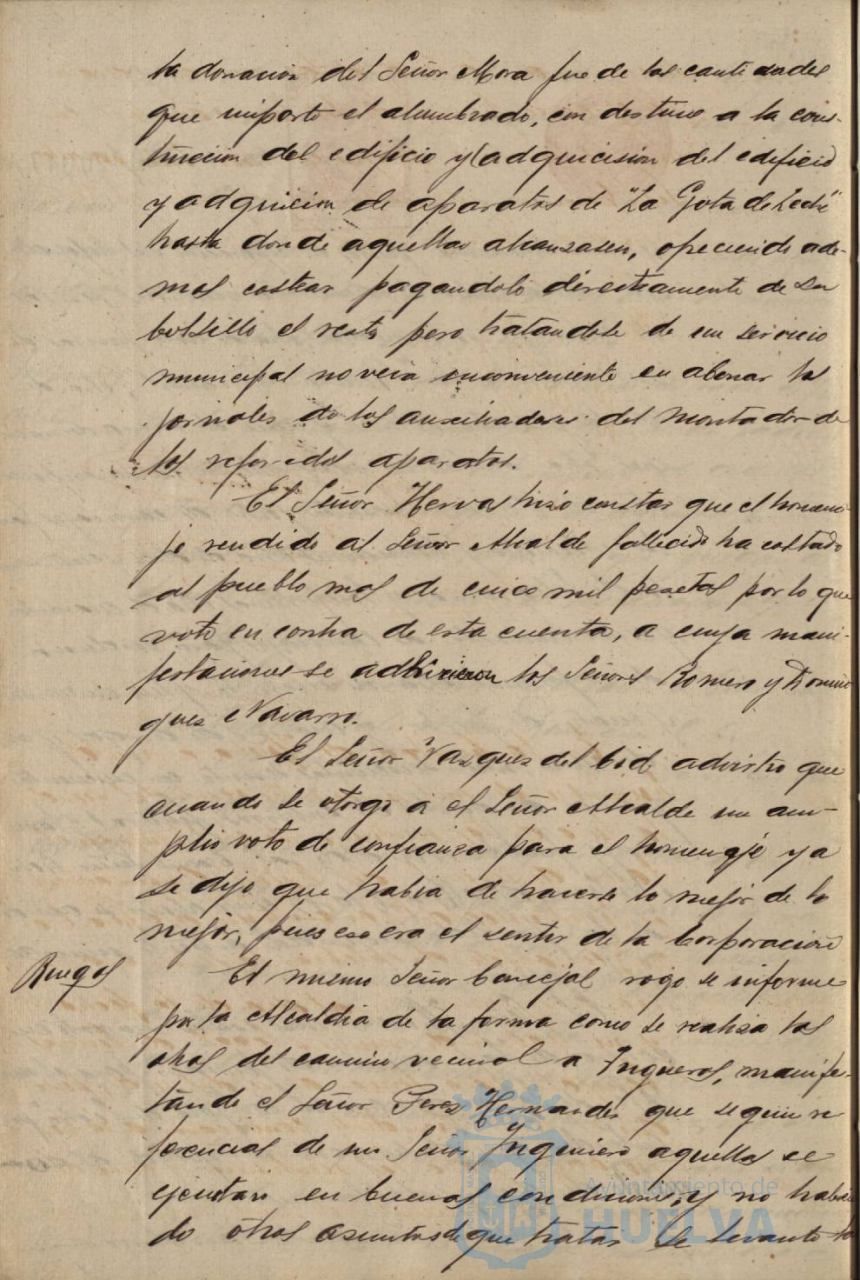 la donacion del Señor Mora fue de las cantidades
que importe el alumbrado, con destino a la cons-
trucción del edificio y (adquicisión del edificio
y adquicicion de aparatos de "La Gota de Leche"
hasta donde aquellas alcanzasen, ofreciendo ade-
mas costear pagandolo directamente de su
bolsillo el resto pero tratandose de un servicio
municipal no veia inconveniente en abonar los
jornales de los auxiliadores del montador de
los referidos aparatos.
El Señor Hervas hizo constar que el homena-
je rendido al Señor Alcalde fallecido ha costado
al pueblo mas de cinco mil pesetas por lo que
voto en contra de esta cuenta, a cuya mani-
festaciones se adhirieron los Señores Romero y Domin
guez Navarro.
El Señor Vazquez del Cid advirtio que
cuando se otorgo a el Señor Alcalde un am-
plio voto de confianza para el homenaje ya
se dijo que habia de hacerse lo mejor de lo
mejor, pues eso era el sentir de la Corporación
Ruegos
El mismo Señor Concejal rogo se informe
por la Alcaldia de la forma como se realiza las
obras del camino vecinal a Trigueros, manifes-
tando el Señor Perez Hernandez que segun re
ferencias de un Señor Ingeniero aquellas se
ejecutan en buenas condiciones, y no habien
do otros asuntos de que tratar se levanto la
Ayuntamiento de
HUELVA